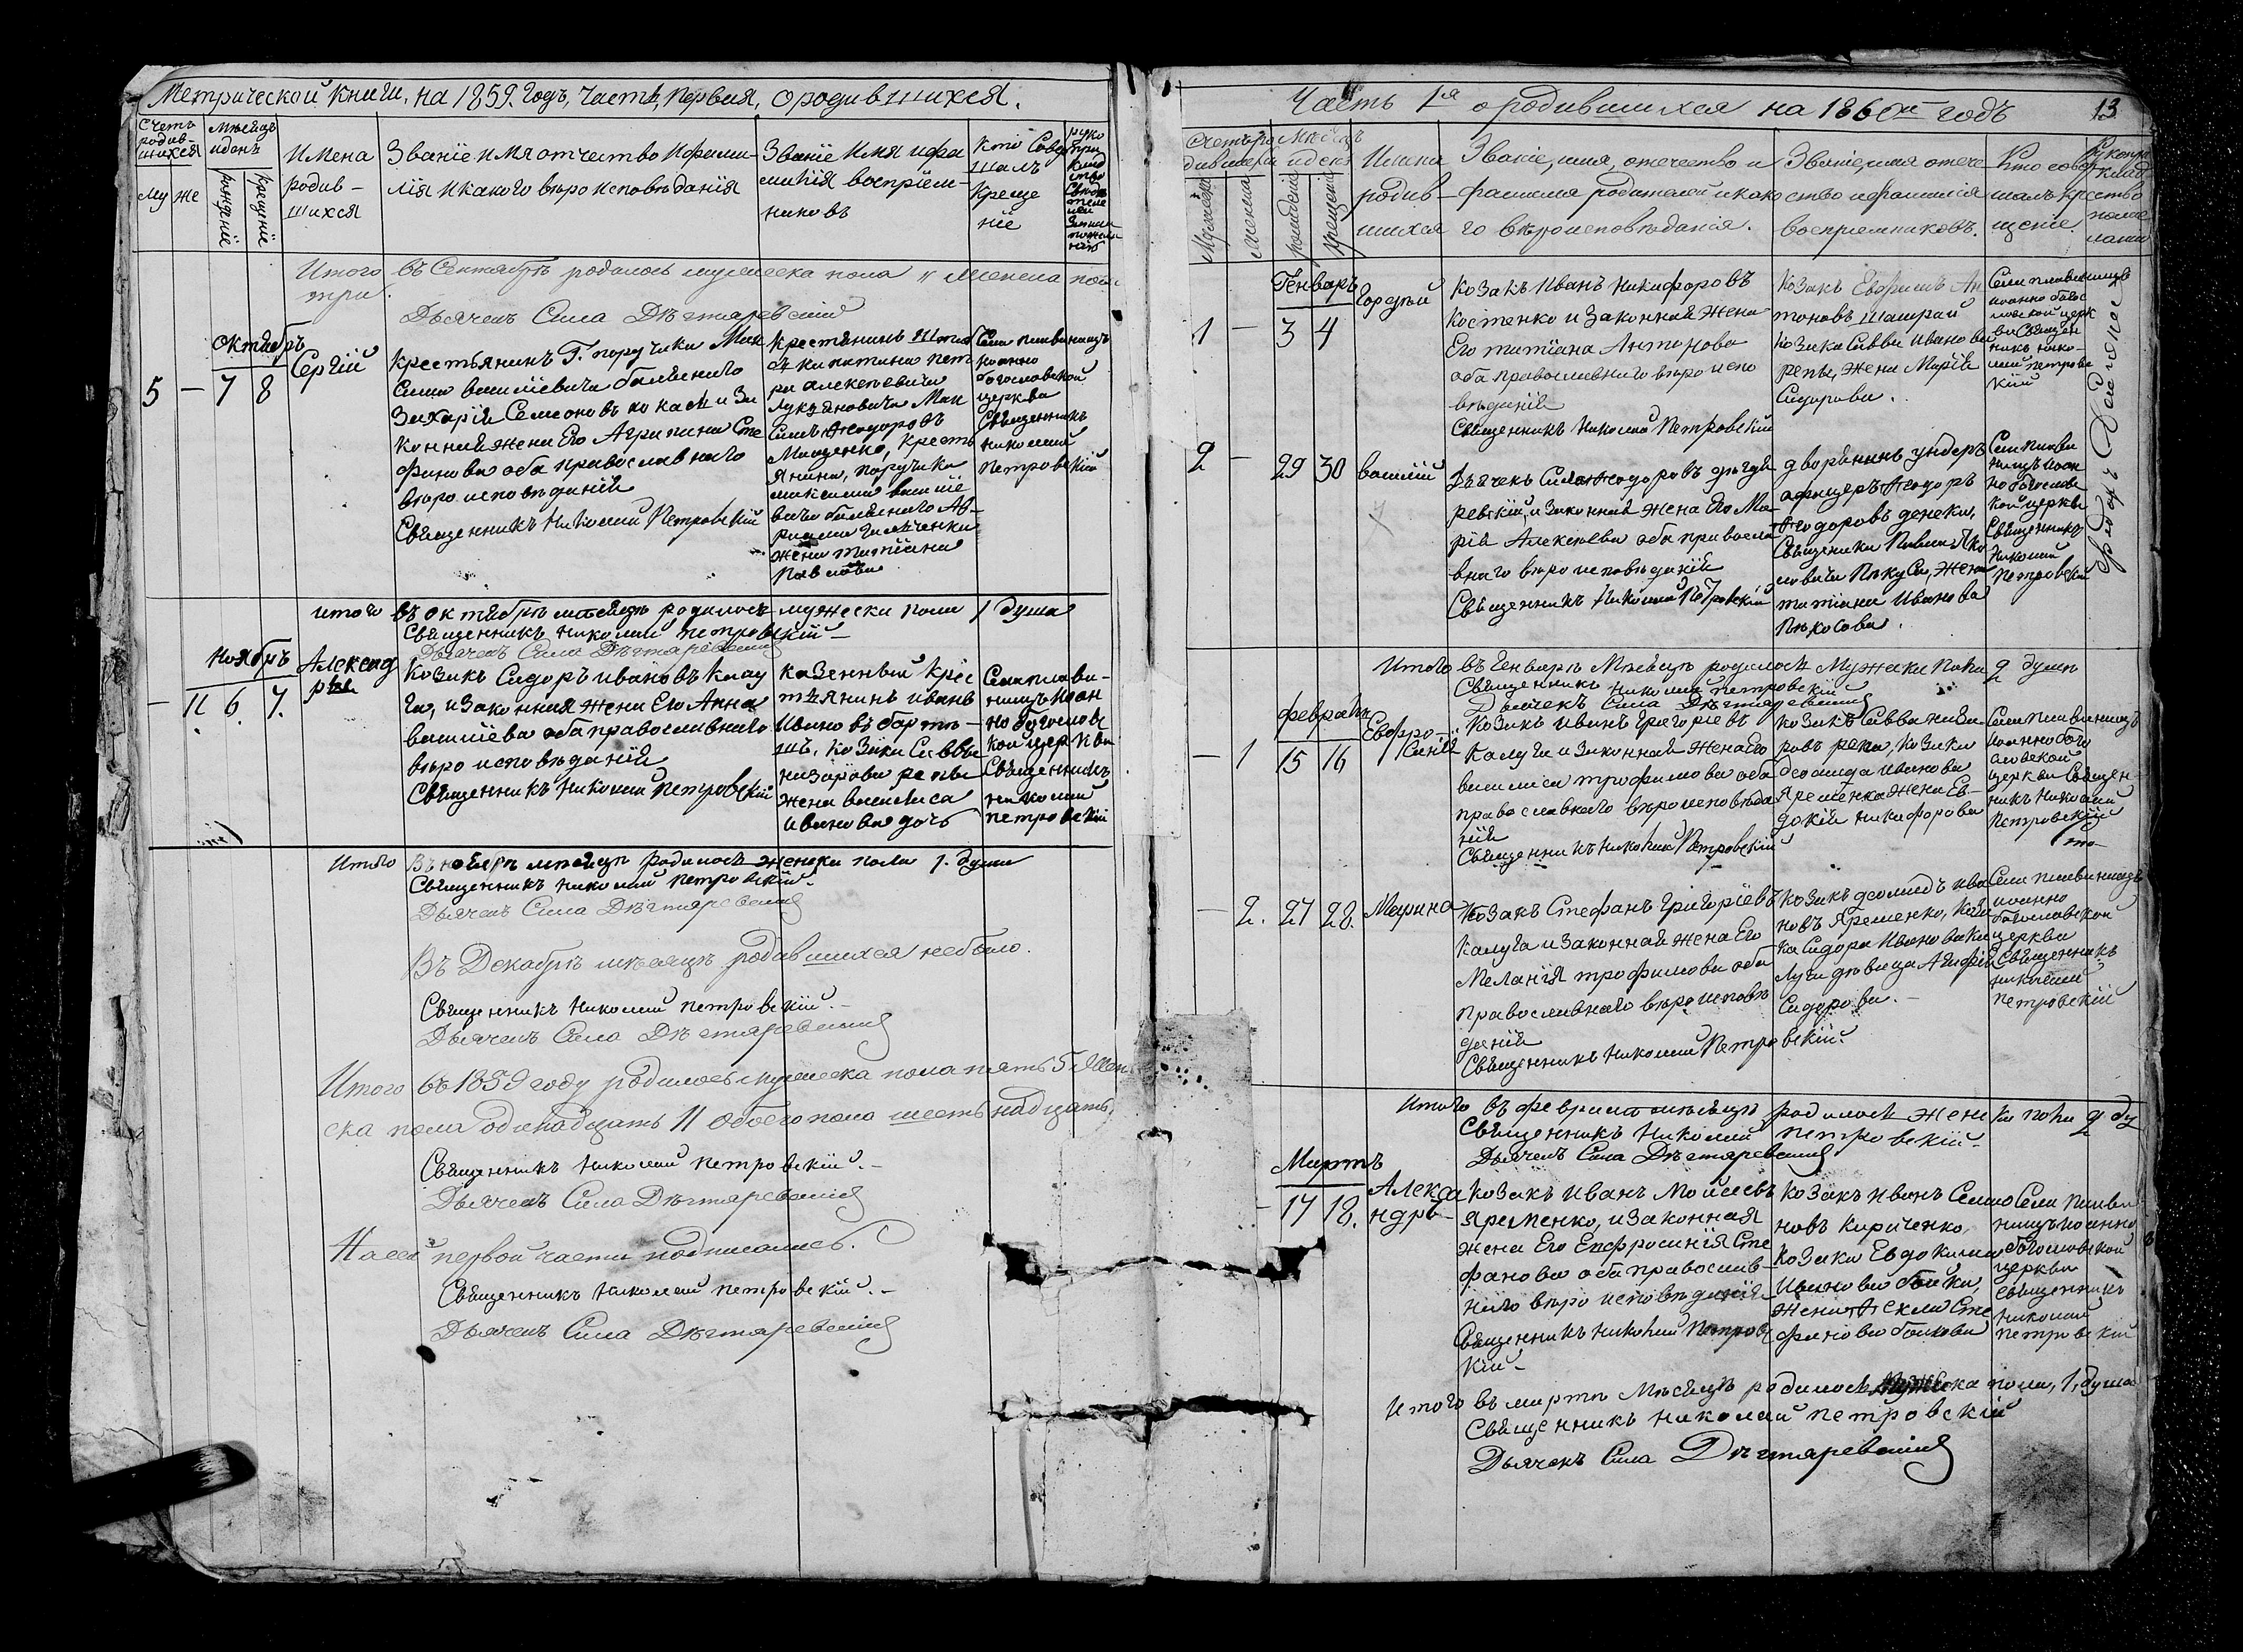 Метрической Книги, на 1859. Годъ, Часть, Первая, о родившихся.
Счетъ родив-шихся
Му же
Мѣсяцъ и день
рожденіе
крещеніе
Имена
родив-
шихся
Званіе имя отчество и фами-
лія и какого вѣроисповѣданія
Званіе имя и фа
милія воспріем-
никовъ
Кто совер
шалъ
Креще
ніе
Итого въ Сентябрѣ родилось мужеска пола " женска пола
три.
Дьячекъ Сила Дѣгтяревскій
Октябрь
5 — 7 8
Сергій
Крестьянинъ Г. поручика Мак
сима василіевича
Захарій Семеоновъ и за
конная жена Его Агрипина Сте
фанова оба православнаго
вѣроисповѣданія
Священникъ Николай Петровскій
Крестьянинъ
капитана пет
ра алексѣевича
Лукьяновича Мак
симъ Ѳеодоровъ
Мащенко, кресть
янина, поручика
максима василіе
вича
жена татіана
Павлова
Села плавинищъ
иоанно
богословской
церкви
Священникъ
николай
петровскій
итого въ октябрѣ мѣсяцѣ родилось мужеска пола 1 душа
Священникъ николай петровскій —
Дьячекъ Сила Дѣгтяревскій
Ноябрь
— 11 6. 7.
Александ
ра
Козакъ Сидоръ ивановъ Калу
га, и законная жена Его Анна
василіева оба православнаго
вѣроисповѣданія
Священникъ николай петровскій
казенный крес
тьянинъ иванъ
ивановъ
козака Саввы
назарова репы
жена василиса
иванова дочь
Села плави-
нищъ Иоан
но богослов
кои церкви
Священникъ
николай
петровскій
Итого Въ ноябрѣ мѣсяцѣ родилось женска пола 1. душа
Священникъ николай петровскій.
Дьячекъ Сила Дѣгтяревскій
Въ Декабрѣ мѣсяцѣ родившихся небыло.
Священникъ Николай петровскій. —
Дьячекъ Сила Дѣгтяревскій
Итого въ 1859 году родилось мужеска пола пять 5 Жен
ска пола одинадцать 11 обоего пола шестьнадцать.
Священникъ николай петровскій. —
Дьячекъ Сила Дѣгтяревскій
На сей первой части подписались.
Священникъ николай петровскій. —
Дьячекъ Сила Дѣгтяревскій
Часть 1я о родившихся на 1860й годъ
13
Счетъ ро
дившихся
Мужеска
женска
Мѣсяцъ
и день
рожденія
крещенія
Имена
родив-
шихся
Званіе, имя, отечество и
фамилія родителей и како
го вѣроисповѣданія.
Званіе, имя отече
ство и фамилія
воспріемниковъ.
Кто совер
шалъ кре
щеніе.
Генварь
1 — 3 4
Гордѣй
Козакъ Иванъ Никифоровъ
Костенко и законная жена
Его татіана Антонова
оба православнаго вѣроиспо
вѣданія
Священникъ Николай Петровскій
Козакъ Евфимъ Ан
тоновъ Шапрай
козака Саввы Иванова
репы, жена Марія
Сидорова.
Села плавинищъ
иоанно богос
ловской церк
ви Священ
никъ нико-
лай петровс
кій
2 — 29 30
василій
Дьячекъ Сила Ѳеодоровъ дѣгтя
ревскій, и законная жена Его Ма-
рія Алексѣева оба правосла
внаго вѣроисповѣданія
Священникъ Николай Петровскій
дворянинъ ундеръ
офицеръ Ѳеодоръ
Ѳеодоровъ денека,
Священика Павла Яко
татіана Иванова
Села плави
нищъ иоан
но богослов
кой церкви
Священникъ
Николай
Петровскій
Итого въ Генварѣ Мѣсяцѣ родилось Мужеска пола 2 души
Священникъ николай петровскій
Дьячекъ Сила Дѣгтяревскій
февраль
— 1 15 16
Евфро-
синія
козакъ иванъ григоріевъ
Калуга и законная жена Его
василиса трофимова оба
православнаго вѣроисповѣда
нія
Священникъ николай Петровскій
козакъ Савва наза
ровъ репа, козака
деомида иванова
Яременка жена Ев-
докія никифорова
Села плавинищъ
иоанно бого
словской
церкви Священ
никъ николай
Петровскій
— 2. 27 28.
Марина
Козакъ Стефанъ Григоріевъ
калуга и законная жена Его
Меланія трофимова оба
православнаго вѣроисповѣ
данія
Священникъ николай Петровскій.
Козакъ деомидъ ива
новъ Яременко, коза
ка Сидора Иванова Ка
луги дѣвица Агафія
Сидорова. —
Села плавинищъ
иоанно
богословской
церкви
Священникъ
николай
петровскій
Итого въ февралѣ мѣсяцѣ родилось женска пола 2 ду
Священникъ Николай петровскій
Дьячекъ Сила Дѣгтяревскій
Мартъ
- 17 18.
Алекса
ндръ
козакъ иванъ Моисеевъ
Яременко, и законная
жена Его Евфросинія Сте
фанова оба православ-
наго вѣроисповѣданія
Священникъ николай петровс
кій —
козакъ иванъ Семио
новъ Кириченко,
козака Евдокима
Иванова бойка,
жена Ѳекла Сте
фанова бойкова
Села плави
нищъ иоанно
богословской
церкви
Священникъ
николай
петровскій
Итого въ мартѣ Мѣсяцѣ родилось мужеска пола, 1, душа
Священникъ николай петровскій
Дьячекъ Сила Дѣгтяревскій